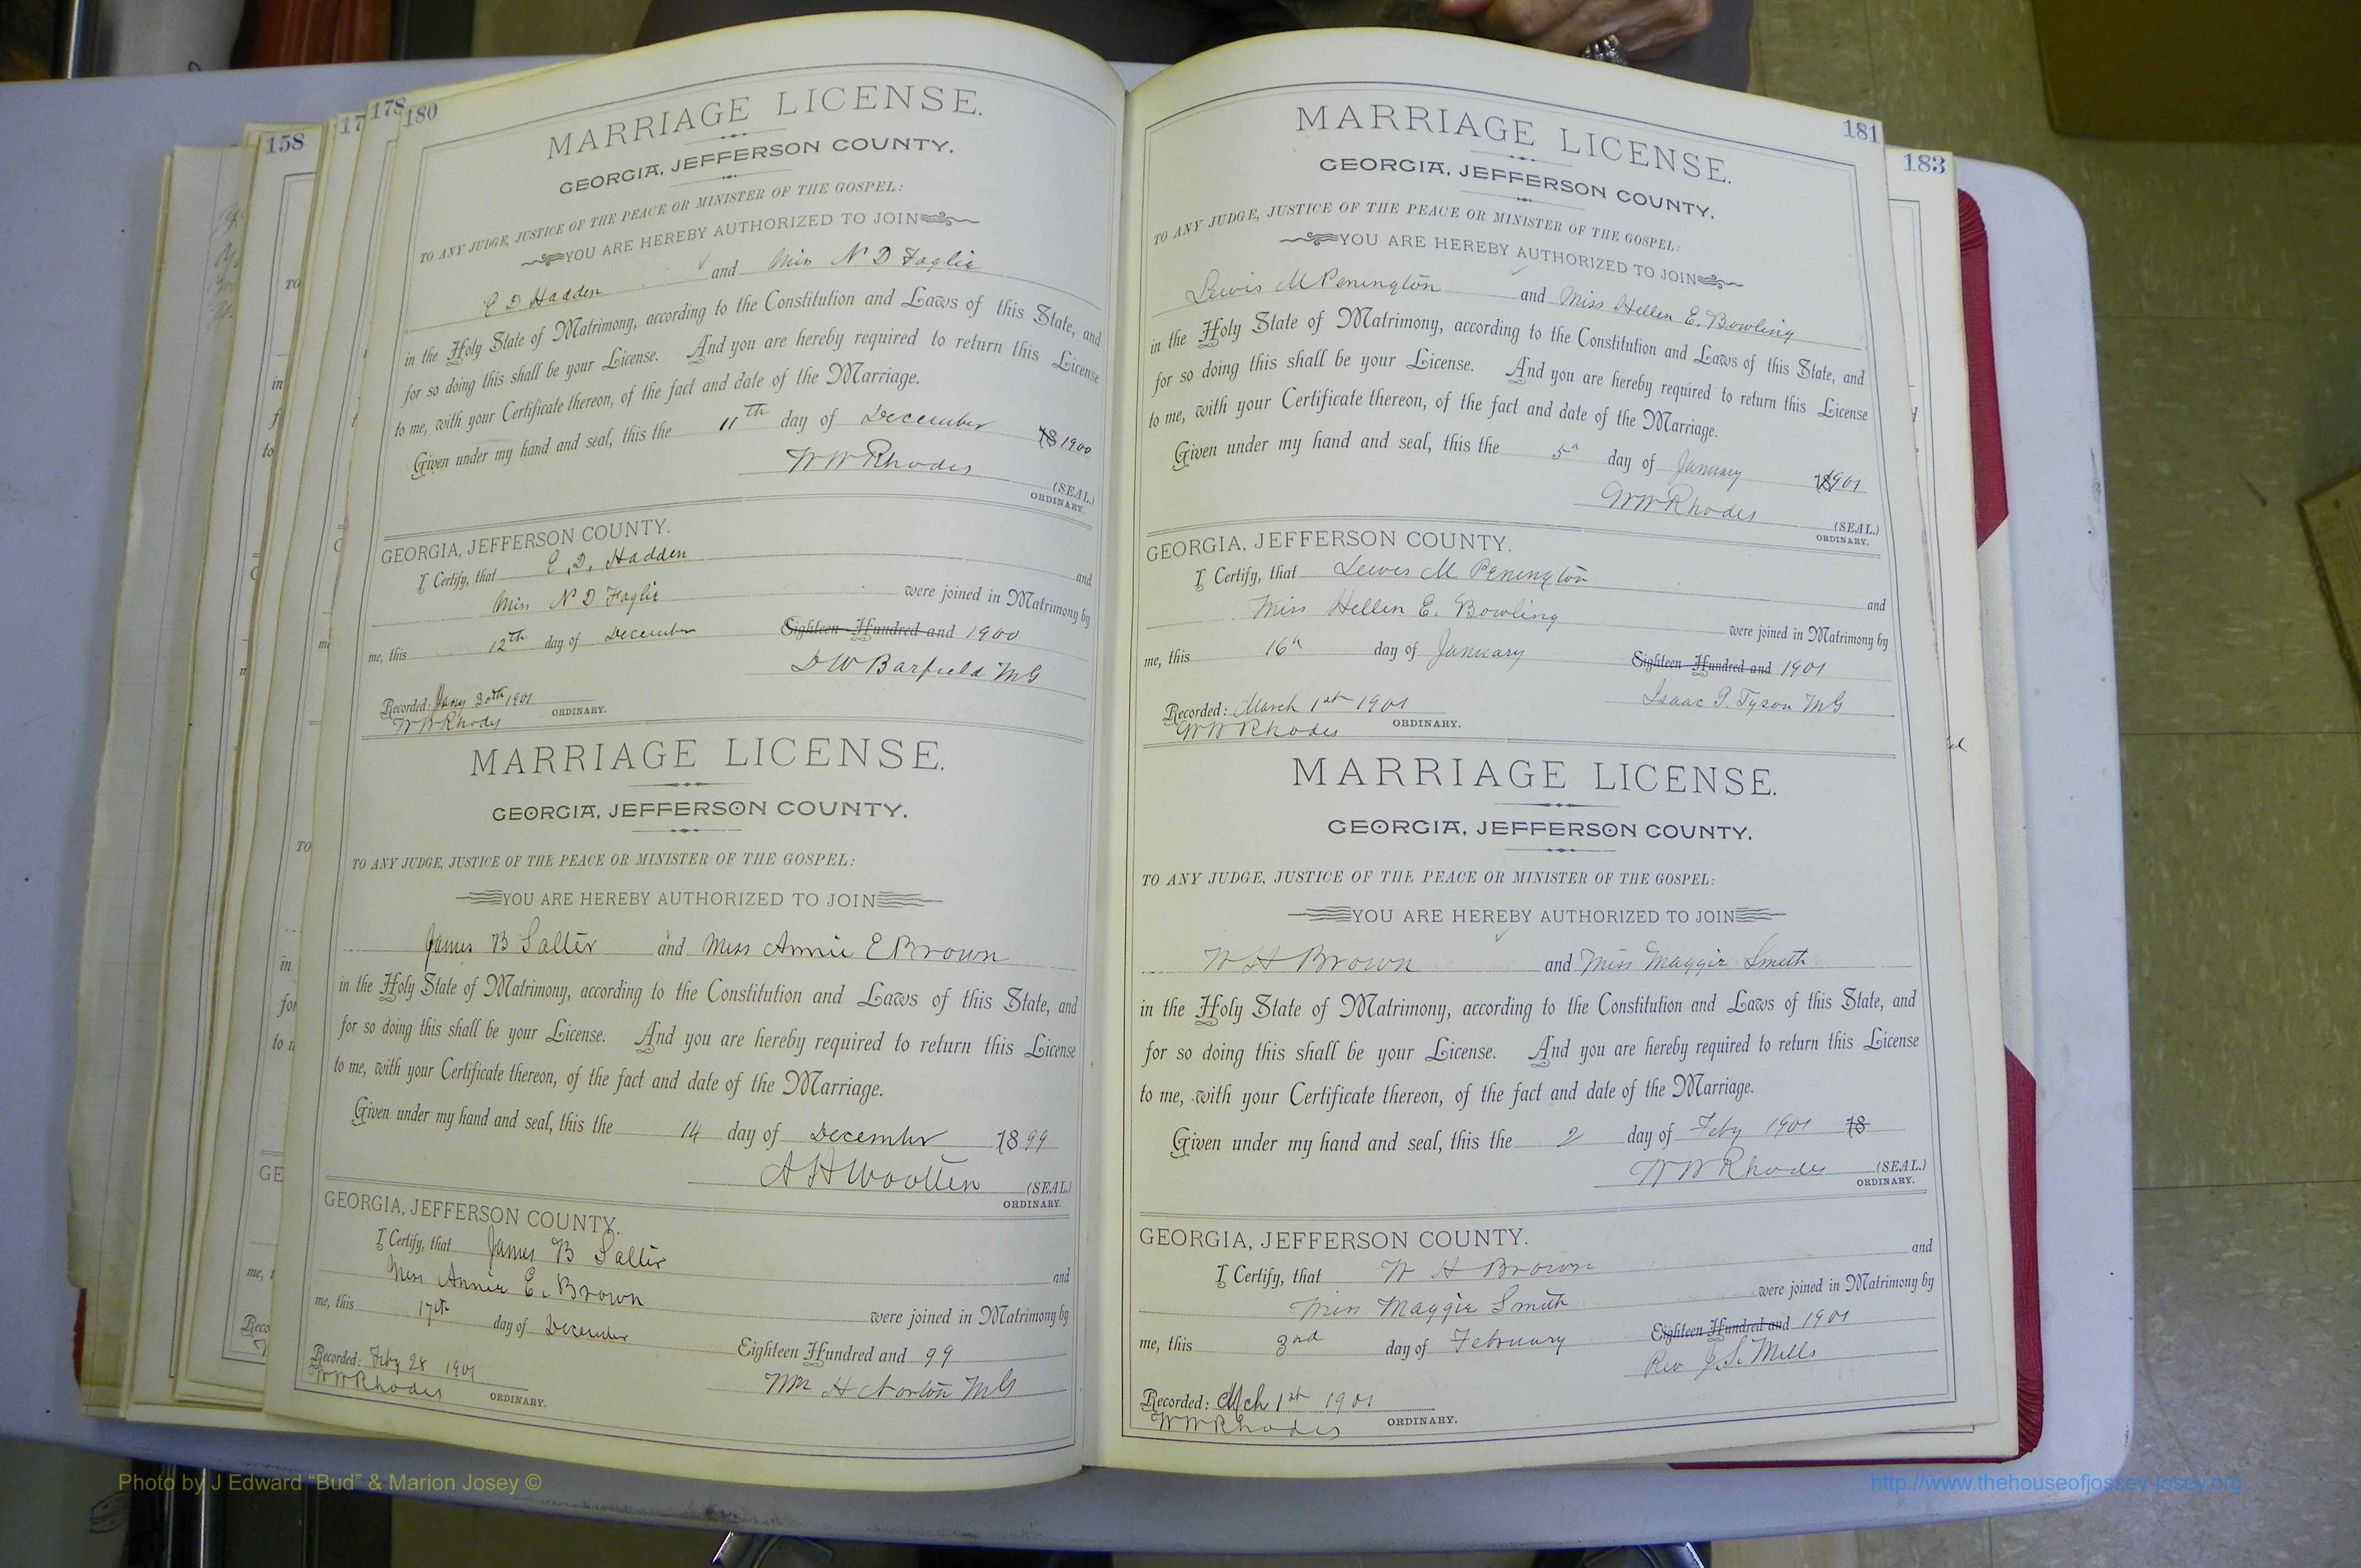 158
178
180
MARRIAGE LICENSE.
GEORGIA, JEFFERSON COUNTY.
TO ANY JUDGE, JUSTICE OF THE PEACE OR MINISTER OF THE GOSPEL:
YOU ARE HEREBY AUTHORIZED TO JOIN
C D. Hadden and Miss N D Faglie
in the Holy State of Matrimony, according to the Constitution and Laws of this State, and
for so doing this shall be your License. And you are hereby required to return this License
to me, with your Certificate thereon, of the fact and date of the Marriage.
Given under my hand and seal, this the 11th day of December 18 1900
WW Rhodes
(SEAL.)
ORDINARY.
GEORGIA, JEFFERSON COUNTY.
I Certify, that C. D. Hadden and
Miss N D Faglie were joined in Matrimony by
me, this 12th day of December Eighteen Hundred and 1900
D W Barfield MG
Recorded: Jany 30th 1901
WW Rhodes ORDINARY.
MARRIAGE LICENSE.
GEORGIA, JEFFERSON COUNTY.
TO ANY JUDGE, JUSTICE OF THE PEACE OR MINISTER OF THE GOSPEL:
YOU ARE HEREBY AUTHORIZED TO JOIN
James B Salter and Miss Annie E Brown
in the Holy State of Matrimony, according to the Constitution and Laws of this State, and
for so doing this shall be your License. And you are hereby required to return this License
to me, with your Certificate thereon, of the fact and date of the Marriage.
Given under my hand and seal, this the 14 day of December 1899
A H Wootten (SEAL)
ORDINARY.
GEORGIA, JEFFERSON COUNTY.
I Certify, that James B Salter and
Miss Annie E. Brown were joined in Matrimony by
me, this 17th day of December Eighteen Hundred and 99
Wm H Norton MG
Recorded: Feby 28 1901
WW Rhodes ORDINARY.
181
183
MARRIAGE LICENSE.
GEORGIA, JEFFERSON COUNTY.
TO ANY JUDGE, JUSTICE OF THE PEACE OR MINISTER OF THE GOSPEL:
YOU ARE HEREBY AUTHORIZED TO JOIN
Lewis M Penington and Miss Hellen E. Bowling
in the Holy State of Matrimony, according to the Constitution and Laws of this State, and
for so doing this shall be your License. And you are hereby required to return this License
to me, with your Certificate thereon, of the fact and date of the Marriage.
Given under my hand and seal, this the 5th day of January 1901
WW Rhodes (SEAL.)
ORDINARY.
GEORGIA, JEFFERSON COUNTY.
I Certify, that Lewes M Penington and
Miss Hellen E. Bowling were joined in Matrimony by
me, this 16th day of January Eighteen Hundred and 1901
Isaac P. Tyson MG
Recorded: March 1st 1901
WW Rhodes ORDINARY.
MARRIAGE LICENSE.
GEORGIA, JEFFERSON COUNTY.
TO ANY JUDGE, JUSTICE OF THE PEACE OR MINISTER OF THE GOSPEL:
YOU ARE HEREBY AUTHORIZED TO JOIN
W H Brown and Miss Maggie Smith
in the Holy State of Matrimony, according to the Constitution and Laws of this State, and
for so doing this shall be your License. And you are hereby required to return this License
to me, with your Certificate thereon, of the fact and date of the Marriage.
Given under my hand and seal, this the 2 day of Feby 1901 18
WW Rhodes (SEAL.)
ORDINARY.
GEORGIA, JEFFERSON COUNTY.
I Certify, that W H Brown and
Miss Maggie Smith were joined in Matrimony by
me, this 3rd day of February Eighteen Hundred and 1901
Rev J. S. Mills
Recorded: Mch 1st 1901
WW Rhodes ORDINARY.
Photo by J Edward “Bud” & Marion Josey ©
http://www.thehouseofjossey-josey.org